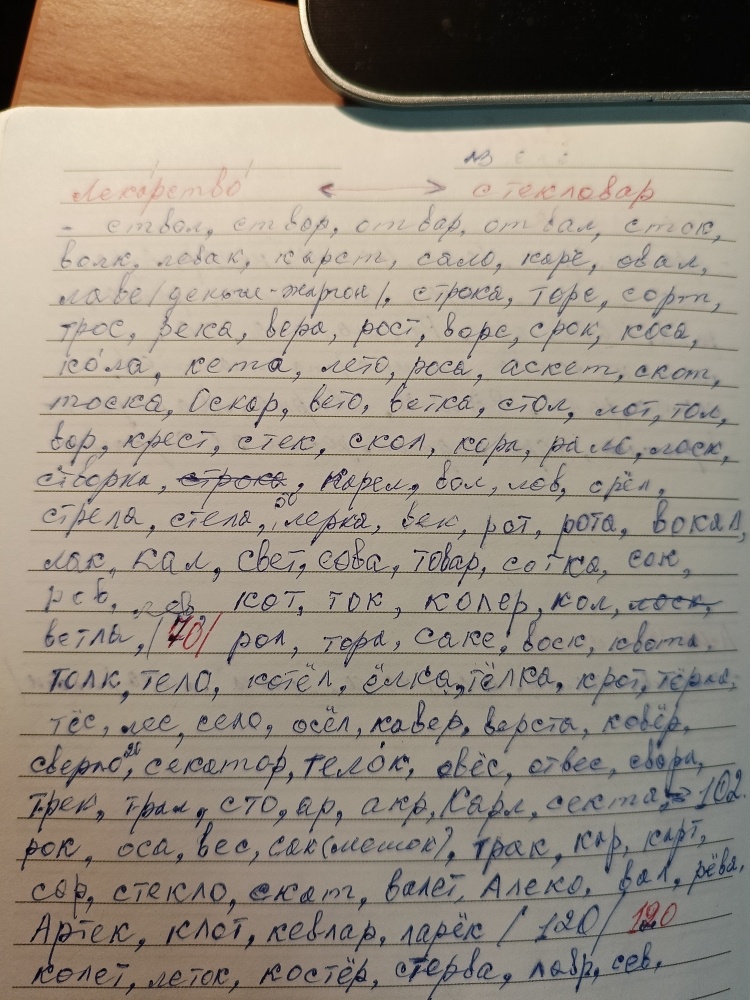 Лекарство ↔ стекловар
- ствол, створ, отвар, отвал, сток,
волк, ловак, карст, сало, каре, овал,
лаве (деньги-жаргон), строка, торс, сорт,
трос, века, вера, рост, ворс, срок, коса,
кола, кета, лето, роса, аскет, скот,
тоска, Оскар, вето, ветка, стол, лот, тол,
вор, крест, стек, скол, кора, рало, лоск,
створка, строка, карел, вол, лов, орёл,
стрела, стела, лерка, век, рот, рота, вокал,
лак, кал, свет, сова, товар, сотка, сок,
рев, лев, кот, ток, колер, кол, лоск,
ветла, (70) рол, тора, саке, воск, квота,
толк, тело, котёл, ёлка, тёлка, крот, тёрка,
тёс, лес, село, осёл, кавер, верста, ковёр,
сверло, секатор, телок, овёс, отвес, свора,
трек, трал, сто, ар, акр, Карл, секта, = 102.
рок, оса, вес, сак (мешок), трак, кар, карт,
сор, стекло, скат, валет, Алеко, вал, рёва,
Артек, клот, кевлар, ларёк (120) 120
колет, леток, костёр, стерва, лавр, сев,